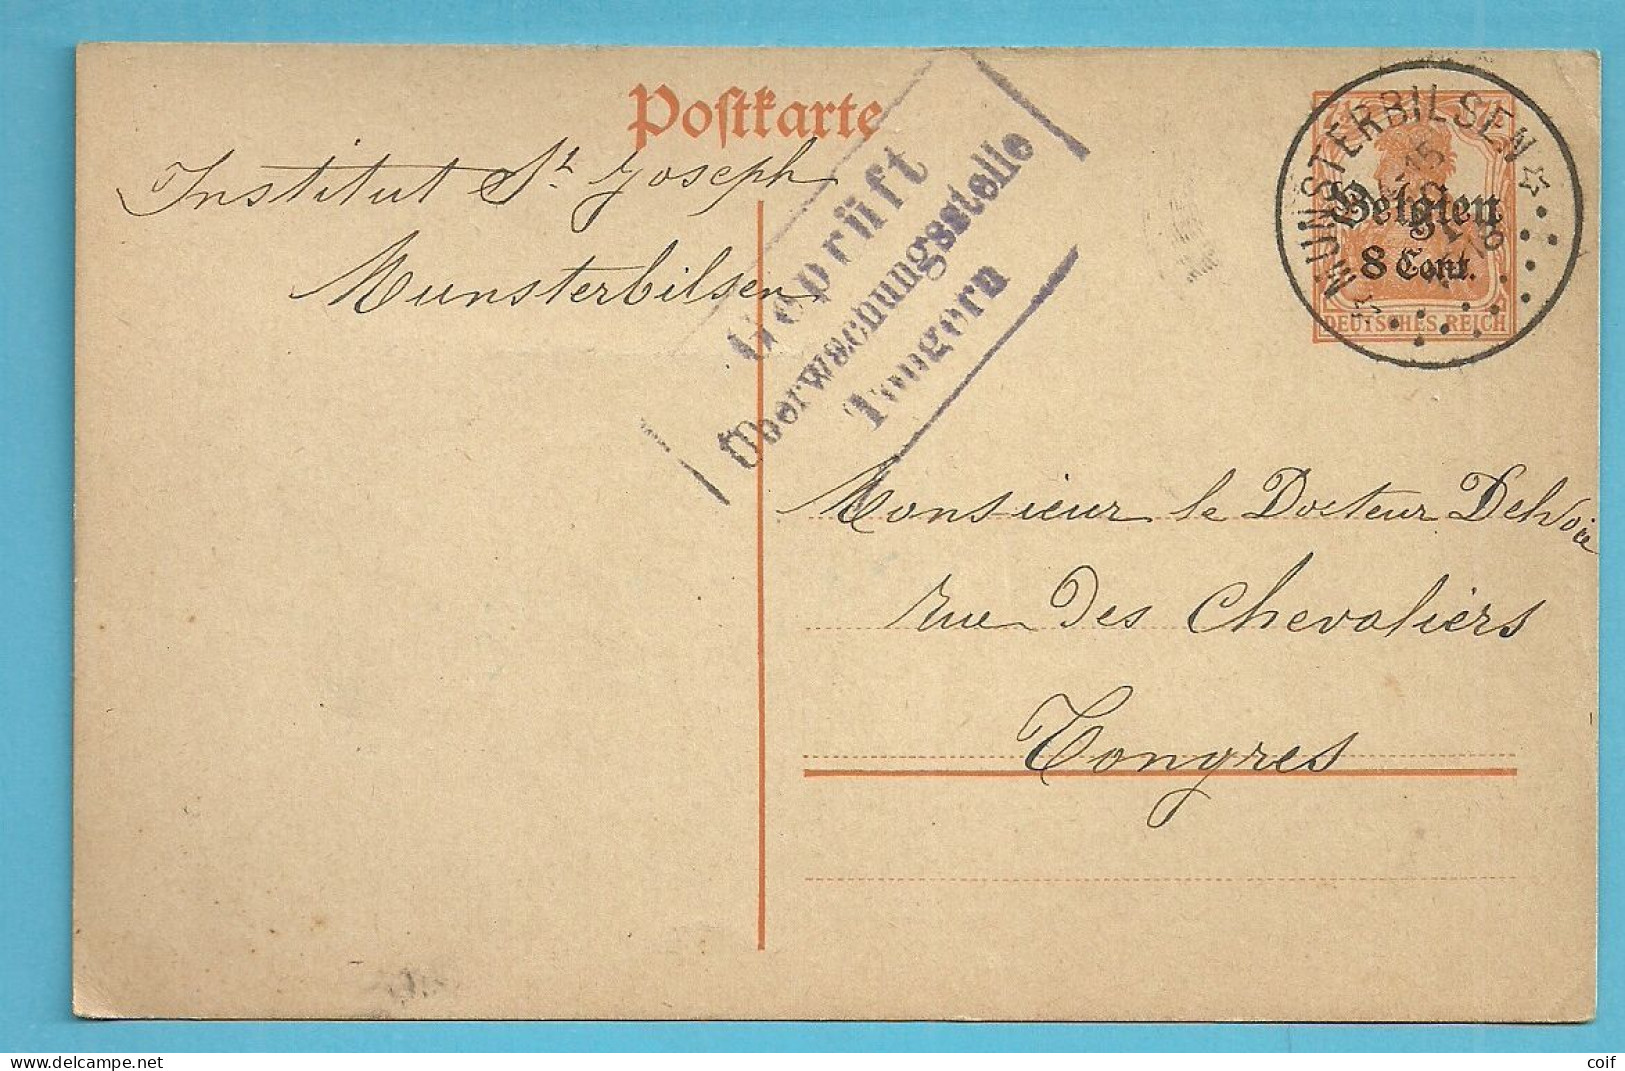 Postkarte
Institut St Joseph
Munsterbilsen
Geprüft
Überwachungsstelle
Tongern
MÜNSTERBILSEN
7½ 7½
Belgien
8 Cent.
DEUTSCHES REICH
Monsieur le Docteur Delvoie
rue des Chevaliers
Tongres
coif